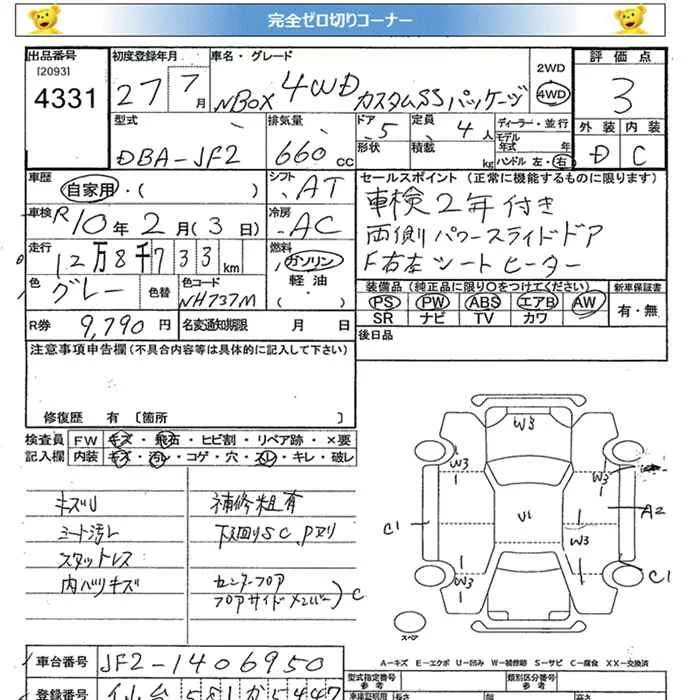 完全ゼロ切りコーナー
出品番号 初度登録年月 車名・グレード 2WD 評価点
[2093]
4331 27 7月 NBOX 4WD カスタムSSパッケージ 4WD 3
型式 排気量 ドア 定員 ディーラー・並行 外装 内装
DBA-JF2 660cc 5 4人 モデル年式 年 D C
形状 積載 kg ハンドル 左・右
車歴 自家用・( ) シフト AT セールスポイント (正常に機能するものに限ります)
車検 R10年2月(3日) 冷房 AC 車検2年付き
走行 12万8千733km 燃料 ガソリン 両側パワースライドドア
軽油・( ) F右左シートヒーター
色 グレー 色替 色コード NH737M 装備品(純正品に限り○をつけてください) 新車保証書
PS PW ABS エアB AW 有・無
SR ナビ TV カワ
R券 9,790円 名変通知期限 月 日 後日品
注意事項申告欄(不具合内容等は具体的に記入して下さい)
修復歴 有 〔箇所 〕
検査員 FW キズ・飛石・ヒビ割・リペア跡・×要
記入欄 内装 キズ・汚レ・コゲ・穴・スレ・キレ・破レ
キズU 補修粗有
シート汚レ 下回りSC、Pヌリ
スタットレス
内ハリキズ センターフロア
フロアサイドメンバー)C
W3
W3 W3
C1 U1 A2
W3
W3 C1
スペア
A－キズ E－エクボ U－凹み W－補修跡 S－サビ C－腐食 XX－交換済
車台番号 JF2-1406950 型式指定番号 参考 類別区分番号 参考
登録番号 仙台581か5447 車庫証明用 長さ 幅 高さ